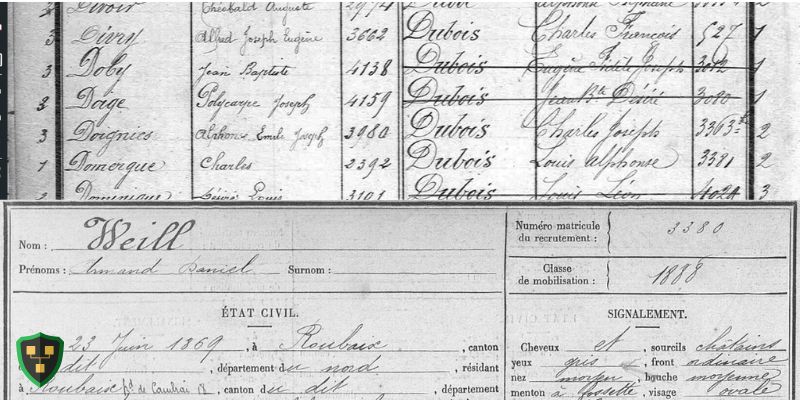 2 Divoir Théobald Auguste 2974 Dubois
3 Divry Alfred Joseph Eugène 3662 Dubois Charles François 527 1
3 Doby Jean Baptiste 4138 Dubois Eugène Joseph 3012
2 Doige Polycarpe Joseph 4159 Dubois Jean Bte Désiré 3080 1
3 Doignies Alphonse Emile Joseph 3980 Dubois Charles Joseph 3363 2
1 Domergue Charles 2392 Dubois Louis Alphonse 3381 2
2 Dominique Louis 3101 Dubois Louis Léon 4024 3
Nom : Weill
Prénoms : Armand Daniel Surnom :
Numéro matricule du recrutement : 3380
Classe de mobilisation : 1888
ÉTAT CIVIL.
23 Juin 1869, à Roubaix, canton
dit, département du nord, résidant
à Roubaix fg de Cambrai, canton du dit, département
SIGNALEMENT.
Cheveux et sourcils châtains
yeux gris, front ordinaire
nez moyen, bouche moyenne
menton à fossette, visage ovale